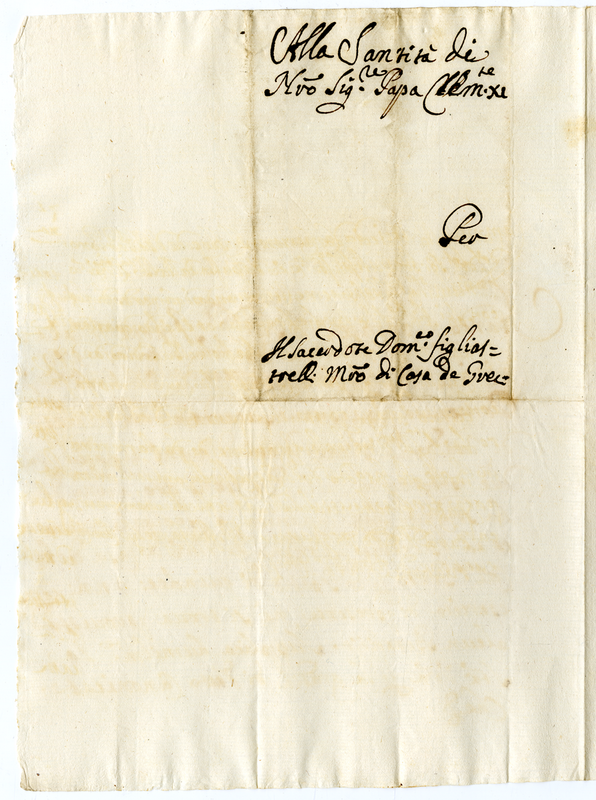 Alla Santità di
Nr̃o Sig.re Papa Clem.te XI
Per
Il Sacerdote Dom.co Figlias=
trelli Mr̃o di Casa de